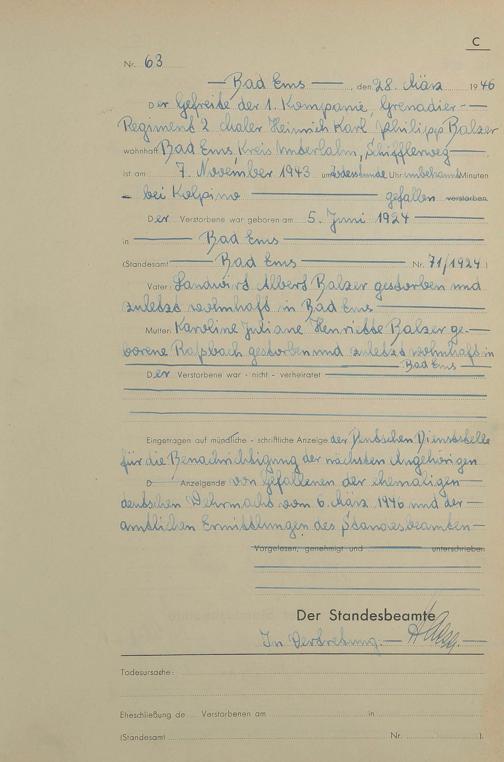 C
Nr. 63
Bad Ems, den 28. März 1946
Der Gefreite der 1. Kompanie, Grenadier-
Regiment 2 Heinrich Karl Philipp Balzer
wohnhaft Bad Ems, Kreis Unterlahn, Schifflerweg
ist am 7. November 1943 um Todesstunde Uhr unbekannt Minuten
bei Kolpino gefallen verstorben.
Der Verstorbene war geboren am 5. Juni 1924
in Bad Ems
(Standesamt Bad Ems Nr. 71/1924)
Vater: Landwirt Albert Balzer gestorben und
zuletzt wohnhaft in Bad Ems
Mutter: Karoline Juliane Henriette Balzer ge-
borene gestorben und zuletzt wohnhaft in
Bad Ems
Der Verstorbene war - nicht - verheiratet
Eingetragen auf mündliche - schriftliche Anzeige der Deutschen Dienststelle
für die Benachrichtigung der nächsten Angehörigen
D Anzeigende von Gefallenen der ehemaligen
deutschen Wehrmacht vom 6. März 1946 und der
amtlichen Ermittlungen des Standesbeamten
Vorgelesen, genehmigt und unterschrieben
Der Standesbeamte
In Vertretung.
Todesursache:
Eheschließung de Verstorbenen am in
(Standesamt Nr. ).